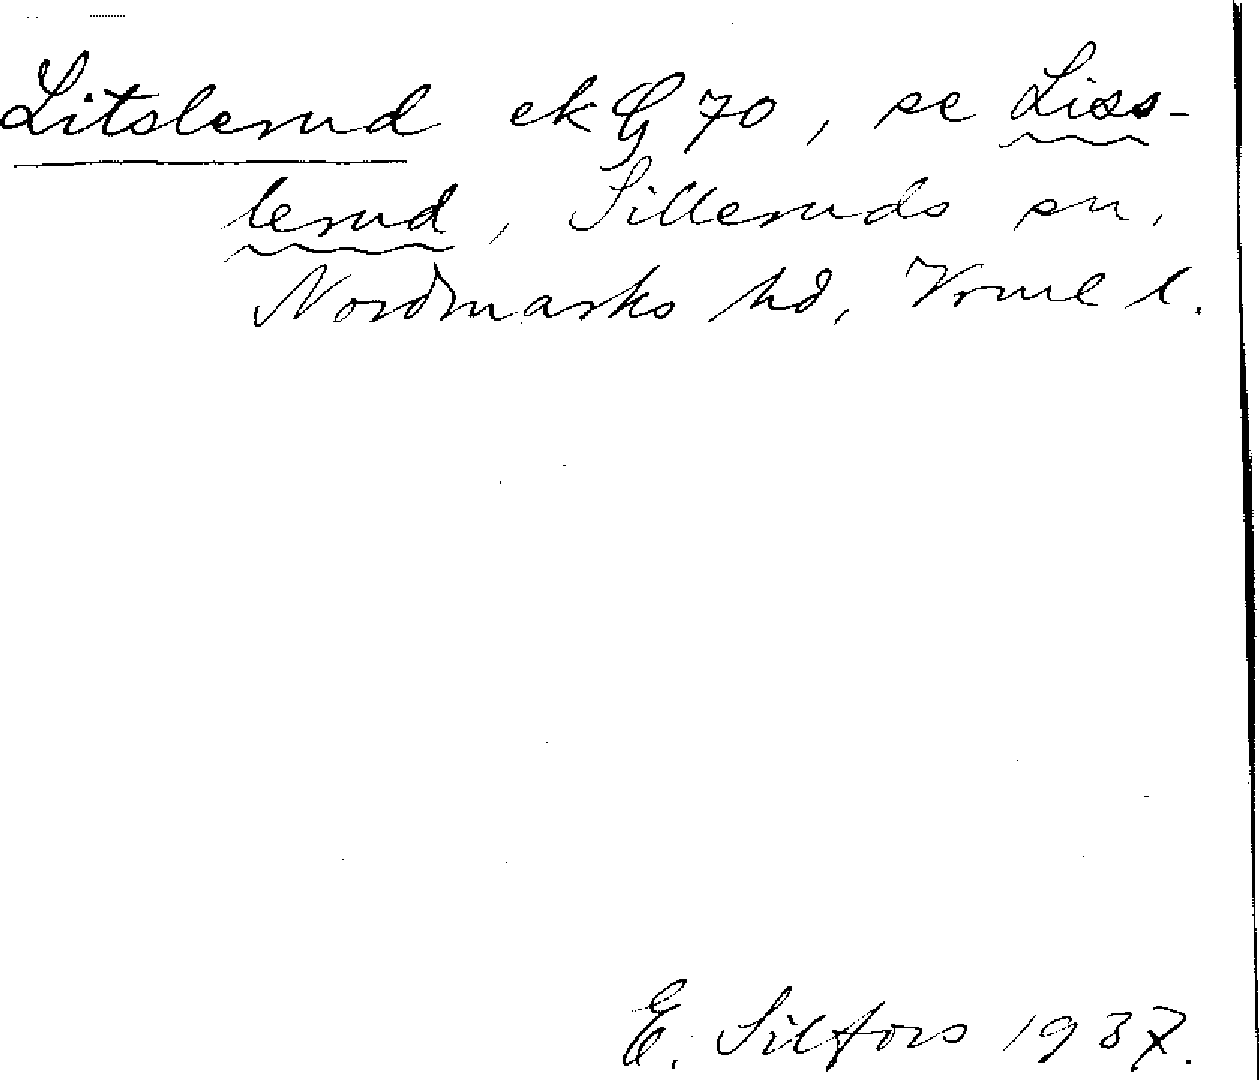 Litslerud ek 70, se Liss-
lerud, Silleruds sn,
Nordmarks hd, Vrml l.
E. Silfors 1937.